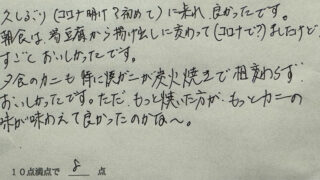 久しぶり(コロナ明けで初めて)に来れ、良かったです。
朝食は、湯豆腐から揚げ出しに変わって(コロナで?)ましたけど、
すごくおいしかったです。
夕食のカニも特に焼ガニが炭火焼きで相変わらず
おいしかったです。ただ、もっと焼いた方が、もっとカニの
味が味わえて良かったのかな〜。
10点満点で 8 点